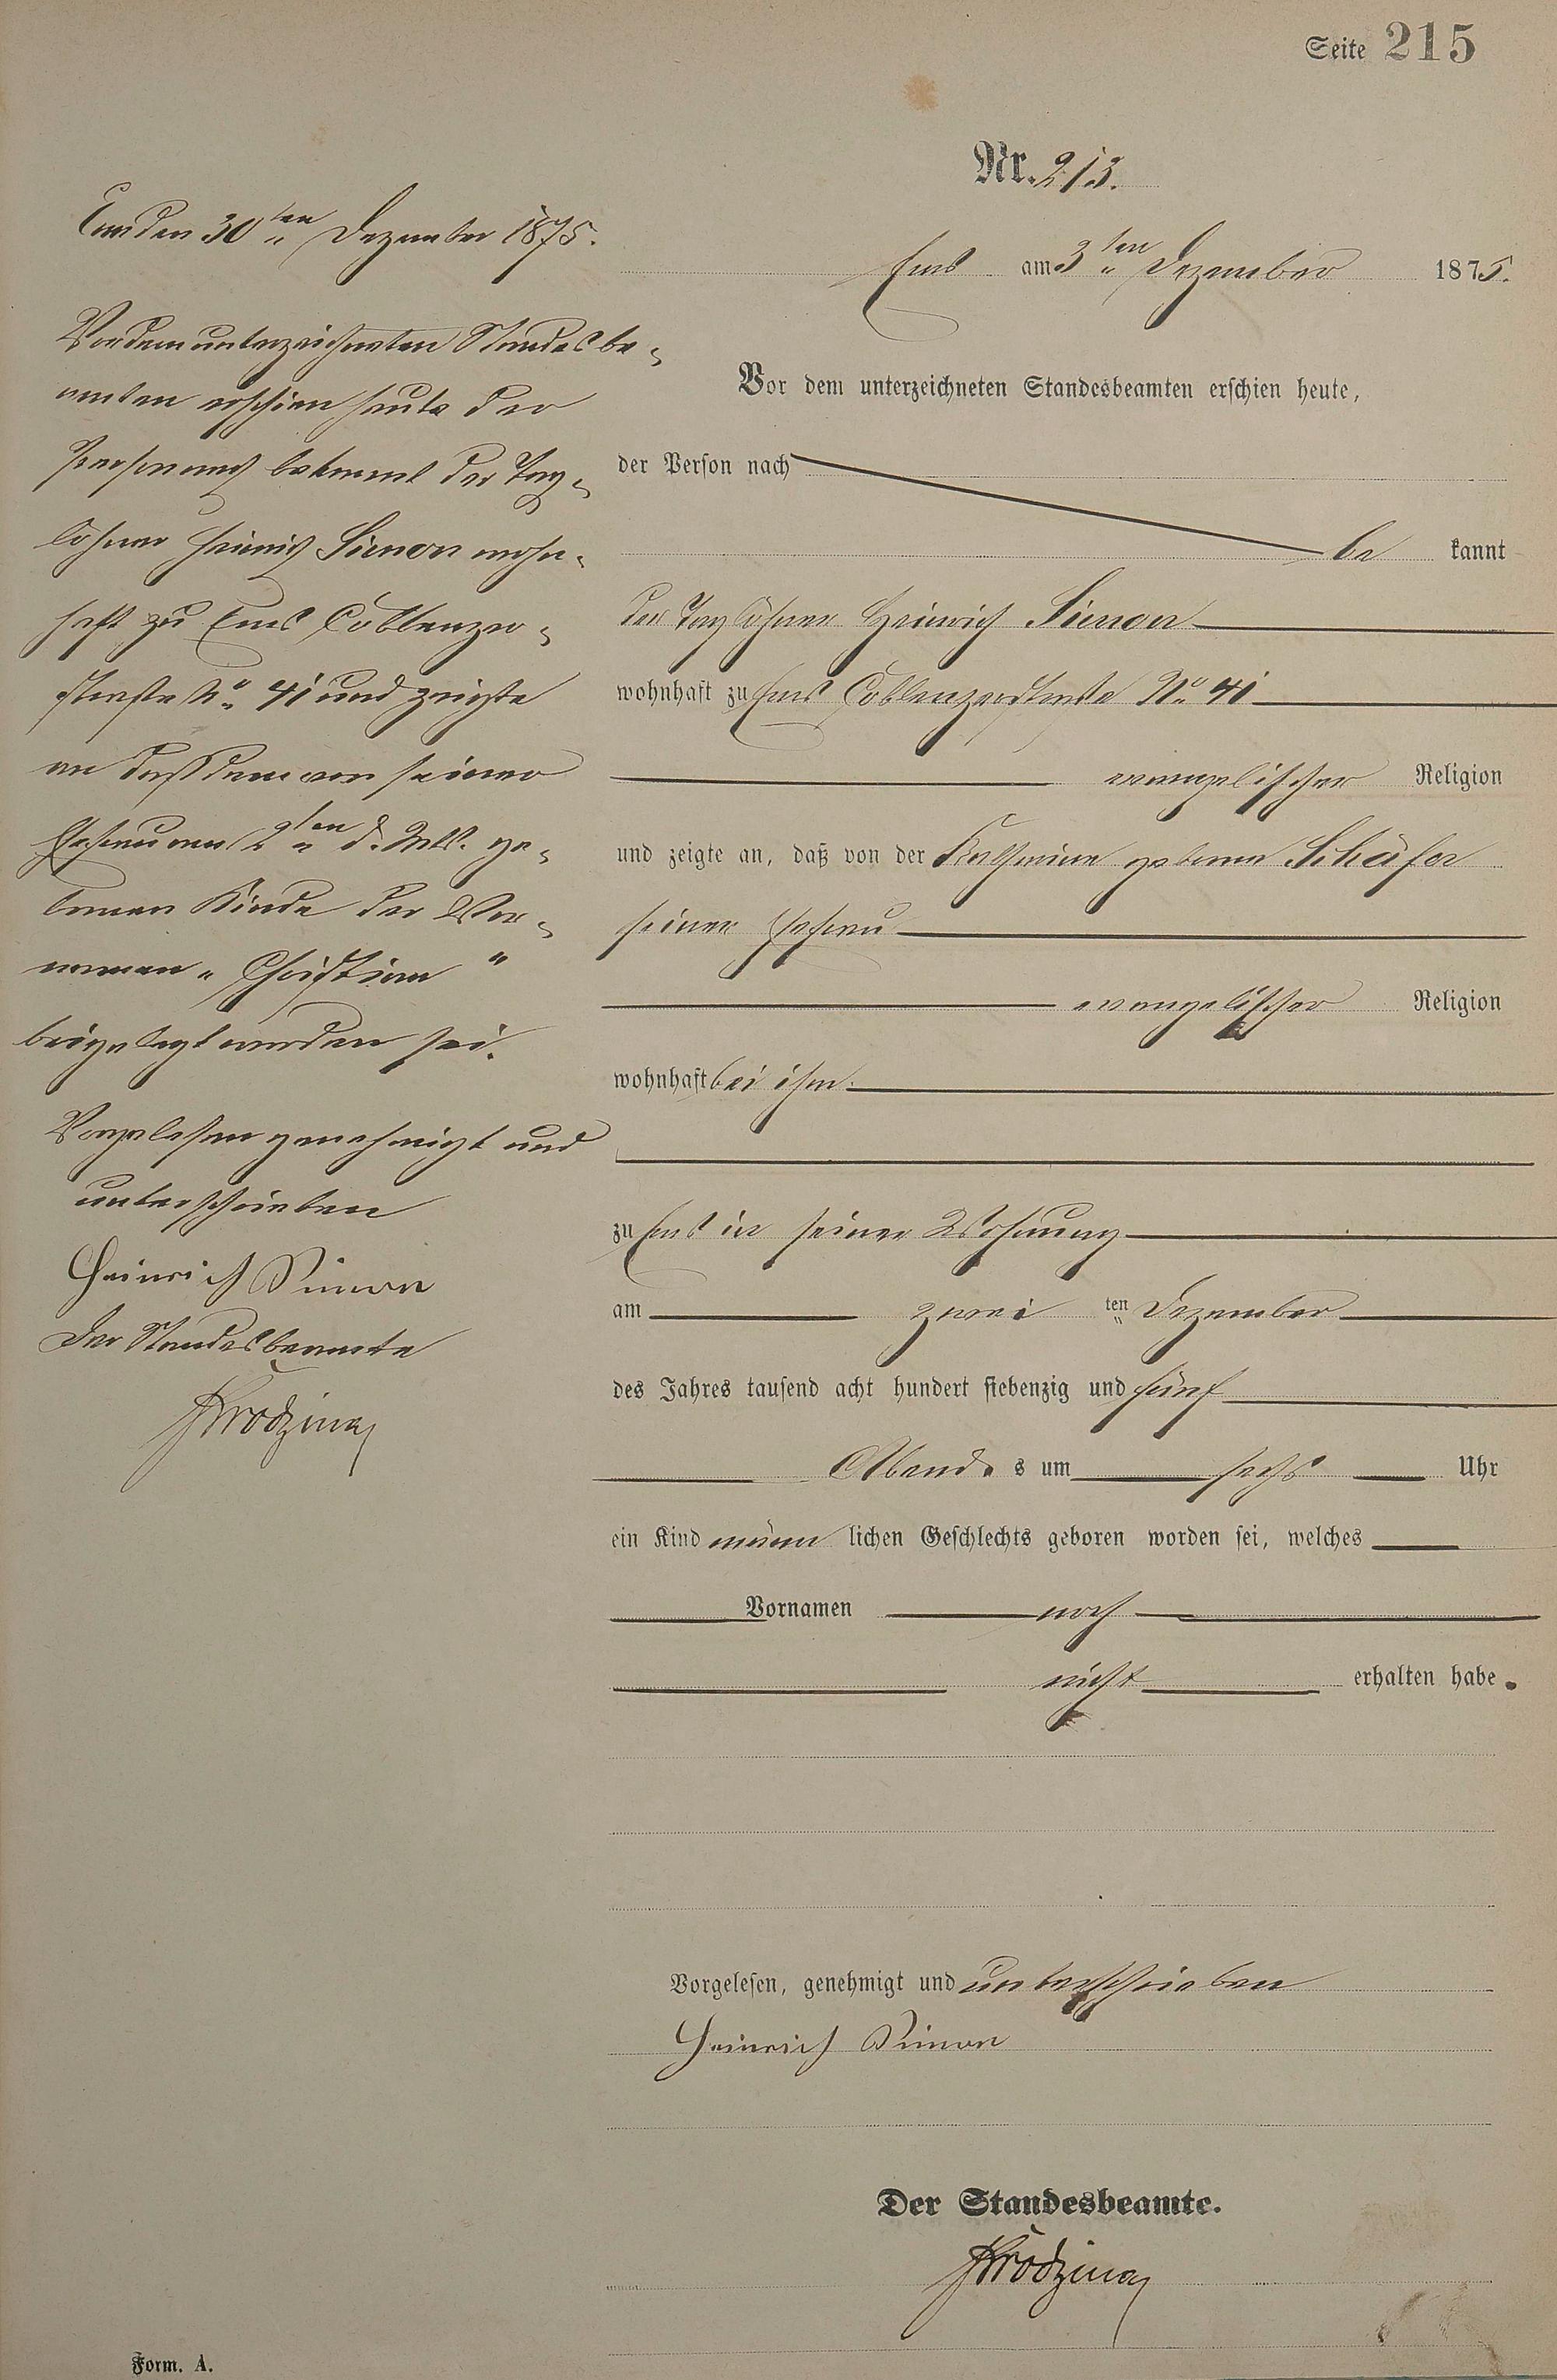 Seite 215
Nr. 213.
Ems am 3ten Dezember 1875.
Vor dem unterzeichneten Standesbeamten erschien heute,
der Person nach
be kannt
der Taglöhner Heinrich Simon
wohnhaft zu Ems Coblenzerstraße No 41
evangelischer Religion
und zeigte an, daß von der Katharina geborne Schäfer
seiner Ehefrau
evangelischer Religion
wohnhaft bei ihm
zu Ems in seiner Wohnung
am zwei ten Dezember
des Jahres tausend acht hundert siebenzig und fünf
Abends um sechs Uhr
ein Kind männlichen Geschlechts geboren worden sei, welches
Vornamen noch
nicht erhalten habe.
Vorgelesen, genehmigt und unterschrieben
Heinrich Simon
Der Standesbeamte.
Ems den 30ten Dezember 1875.
Vor dem unterzeichneten Standesbe-
amten erschien heute der
Person nach bekannt der Tag-
löhner Heinrich Simon wohn-
haft zu Ems Coblenzer-
straße No 41 und zeigte
an daß dem von seiner
Ehefrau am 2ten d. Mts. ge-
bornen Kinde der Vor-
namen "Christian"
beigelegt worden sei.
Vorgelesen genehmigt und
unterschrieben
Heinrich Simon
Der Standesbeamte
Form. A.